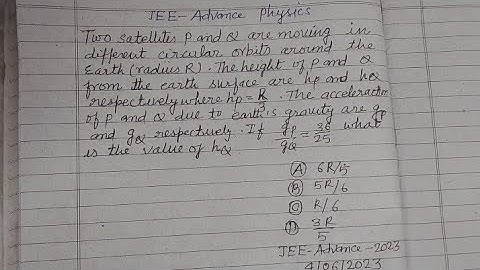 JEE-Advance Physics
Two satellites P and Q are moving in
different circular orbits around the
Earth (radius R). The height of P and Q
from the earth surface are hp and hQ
respectively where hp = R/3. The acceleration
of P and Q due to earth's gravity are gp
and gQ respectively. If gp/gQ = 36/25 what
is the value of hQ
(A) 6R/5
(B) 5R/6
(C) R/6
(D) 3R/5
JEE-Advance-2023
4/06/2023